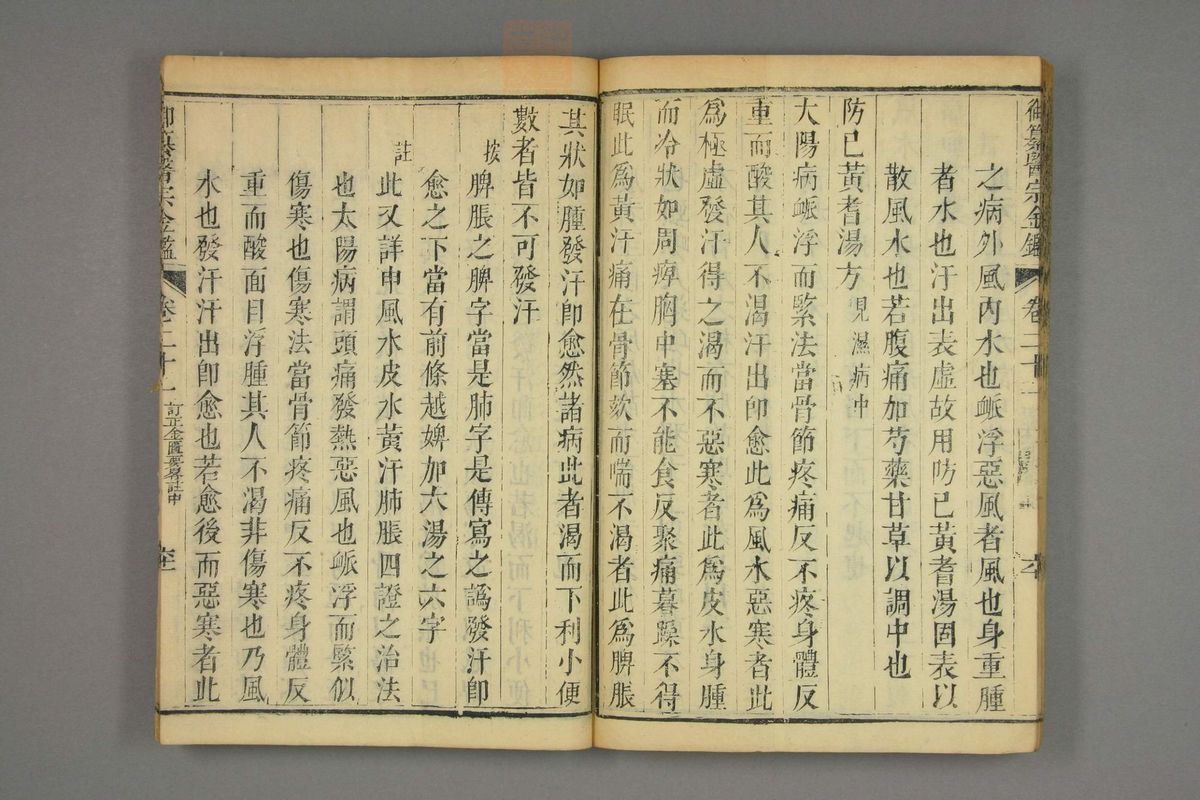 御纂醫宗金鑑 卷二十一
之病外風內水也脈浮惡風者風也身重腫
者水也汗出表虛故用防己黃耆湯固表以
散風水也若腹痛加芍藥甘草以調中也
防已黃耆湯方 見濕病中
大陽病脈浮而緊法當骨節疼痛反不疼身體反
重而酸其人不渴汗出卽愈此為風水惡寒者此
為極虛發汗得之渴而不惡寒者此為皮水身腫
而冷狀如周痺胸中塞不能食反聚痛暮躁不得
眠此為黃汗痛在骨節欬而喘不渴者此為脾脹
其狀如腫發汗卽愈然諸病此者渴而下利小便
數者皆不可發汗
按 脾脹之脾字當是肺字是傳寫之譌發汗卽
愈之下當有前條越婢加六湯之六字
註 此又詳申風水皮水黃汗肺脹四證之治法
也太陽病謂頭痛發熱惡風也脈浮而緊似
傷寒也傷寒法當骨節疼痛反不疼身體反
重而酸面目浮腫其人不渴非傷寒也乃風
水也發汗汗出卽愈也若愈後而惡寒者此
御纂醫宗金鑑 卷二十一 訂正金匱要畧註中